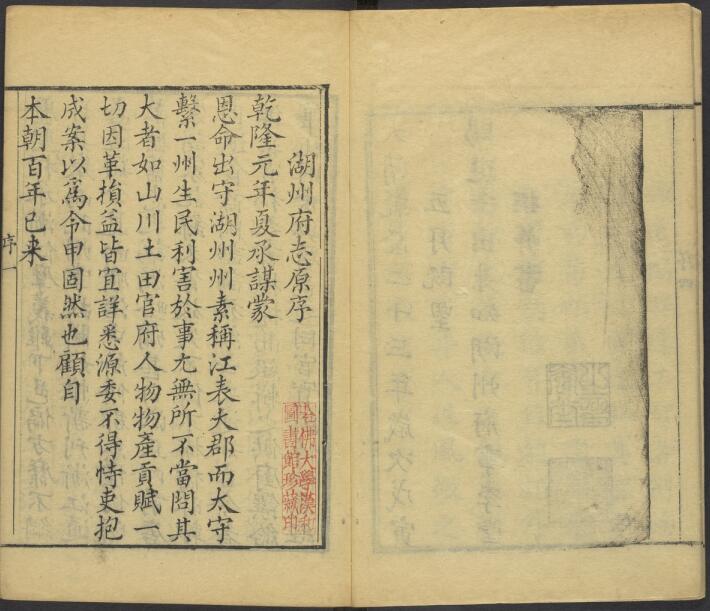 湖州府志原序
乾隆元年夏承謀蒙
恩命出守湖州州素稱江表大郡而太守
繫一州生民利害於事尤無所不當問其
大者如山川土田官府人物物產貢賦一
切因革損益皆宜詳悉源委不得恃吏抱
成案以爲令甲固然也顧自
本朝百年已來
序一
哈佛大學漢和
圖書館珍藏印